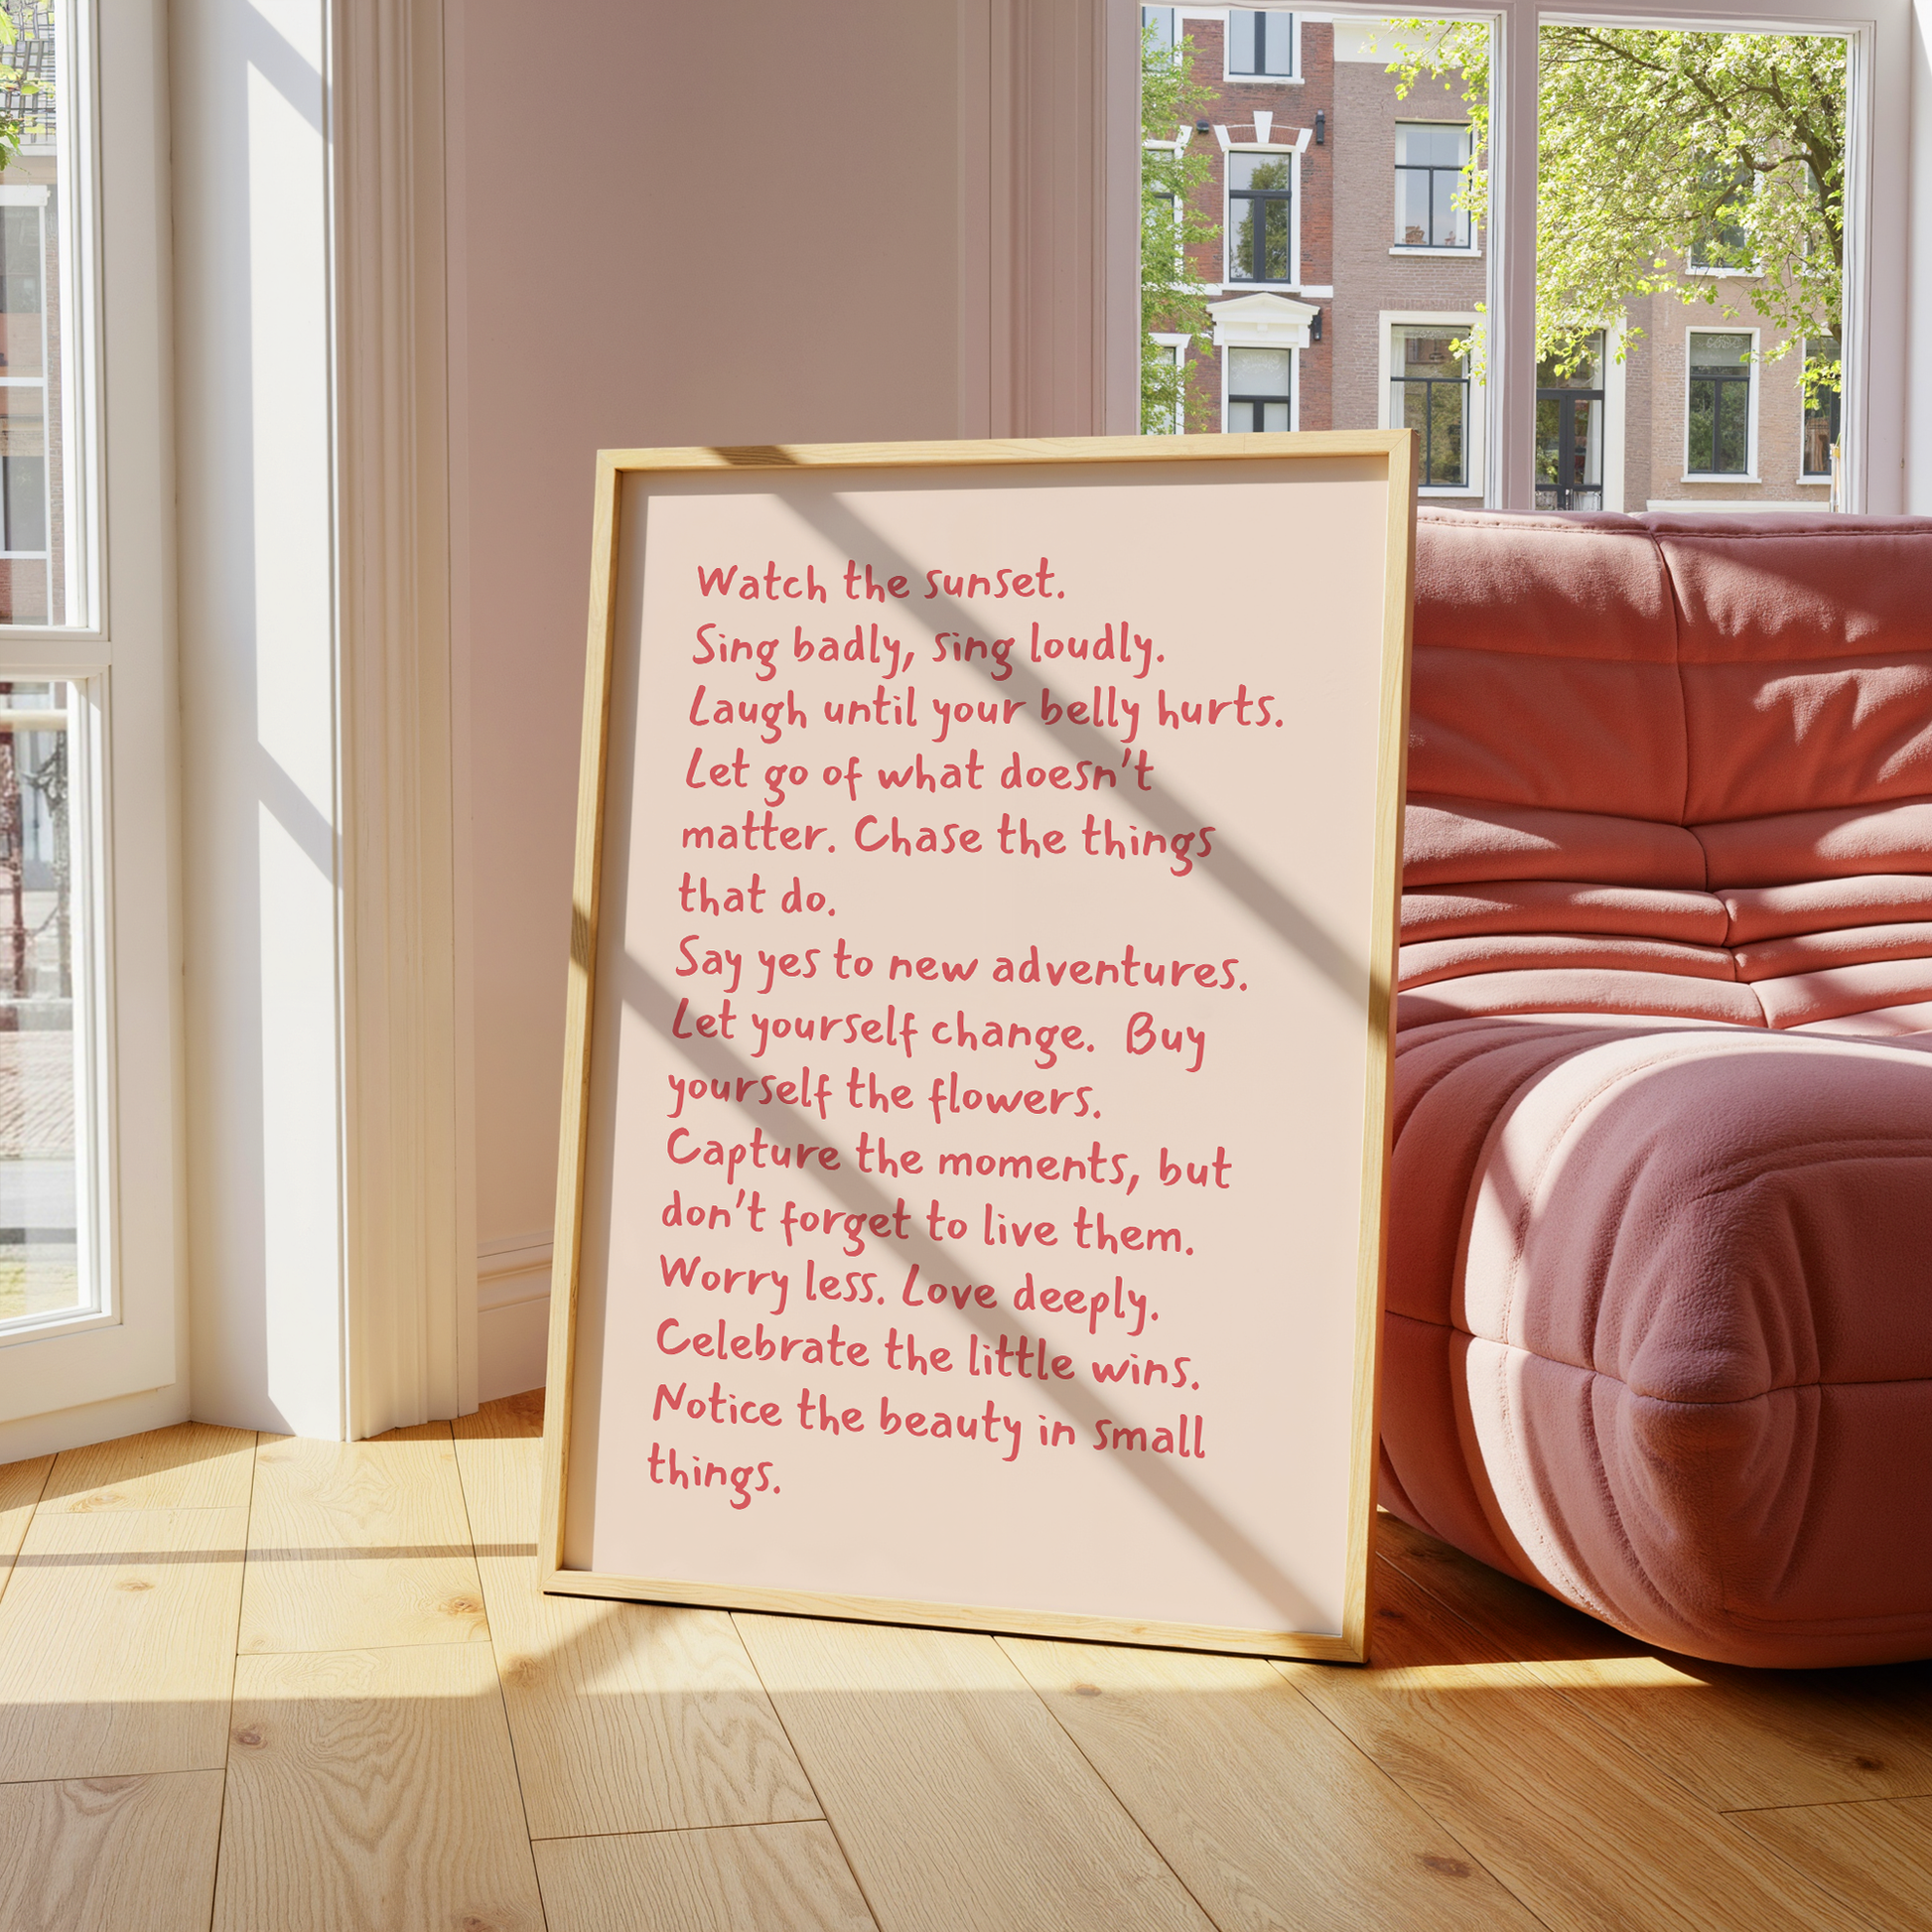 Watch the sunset.
Sing badly, sing loudly.
Laugh until your belly hurts.
Let go of what doesn't
matter. Chase the things
that do.
Say yes to new adventures.
Let yourself change. Buy
yourself the flowers.
Capture the moments, but
don't forget to live them.
Worry less. Love deeply.
Celebrate the little wins.
Notice the beauty in small
things.